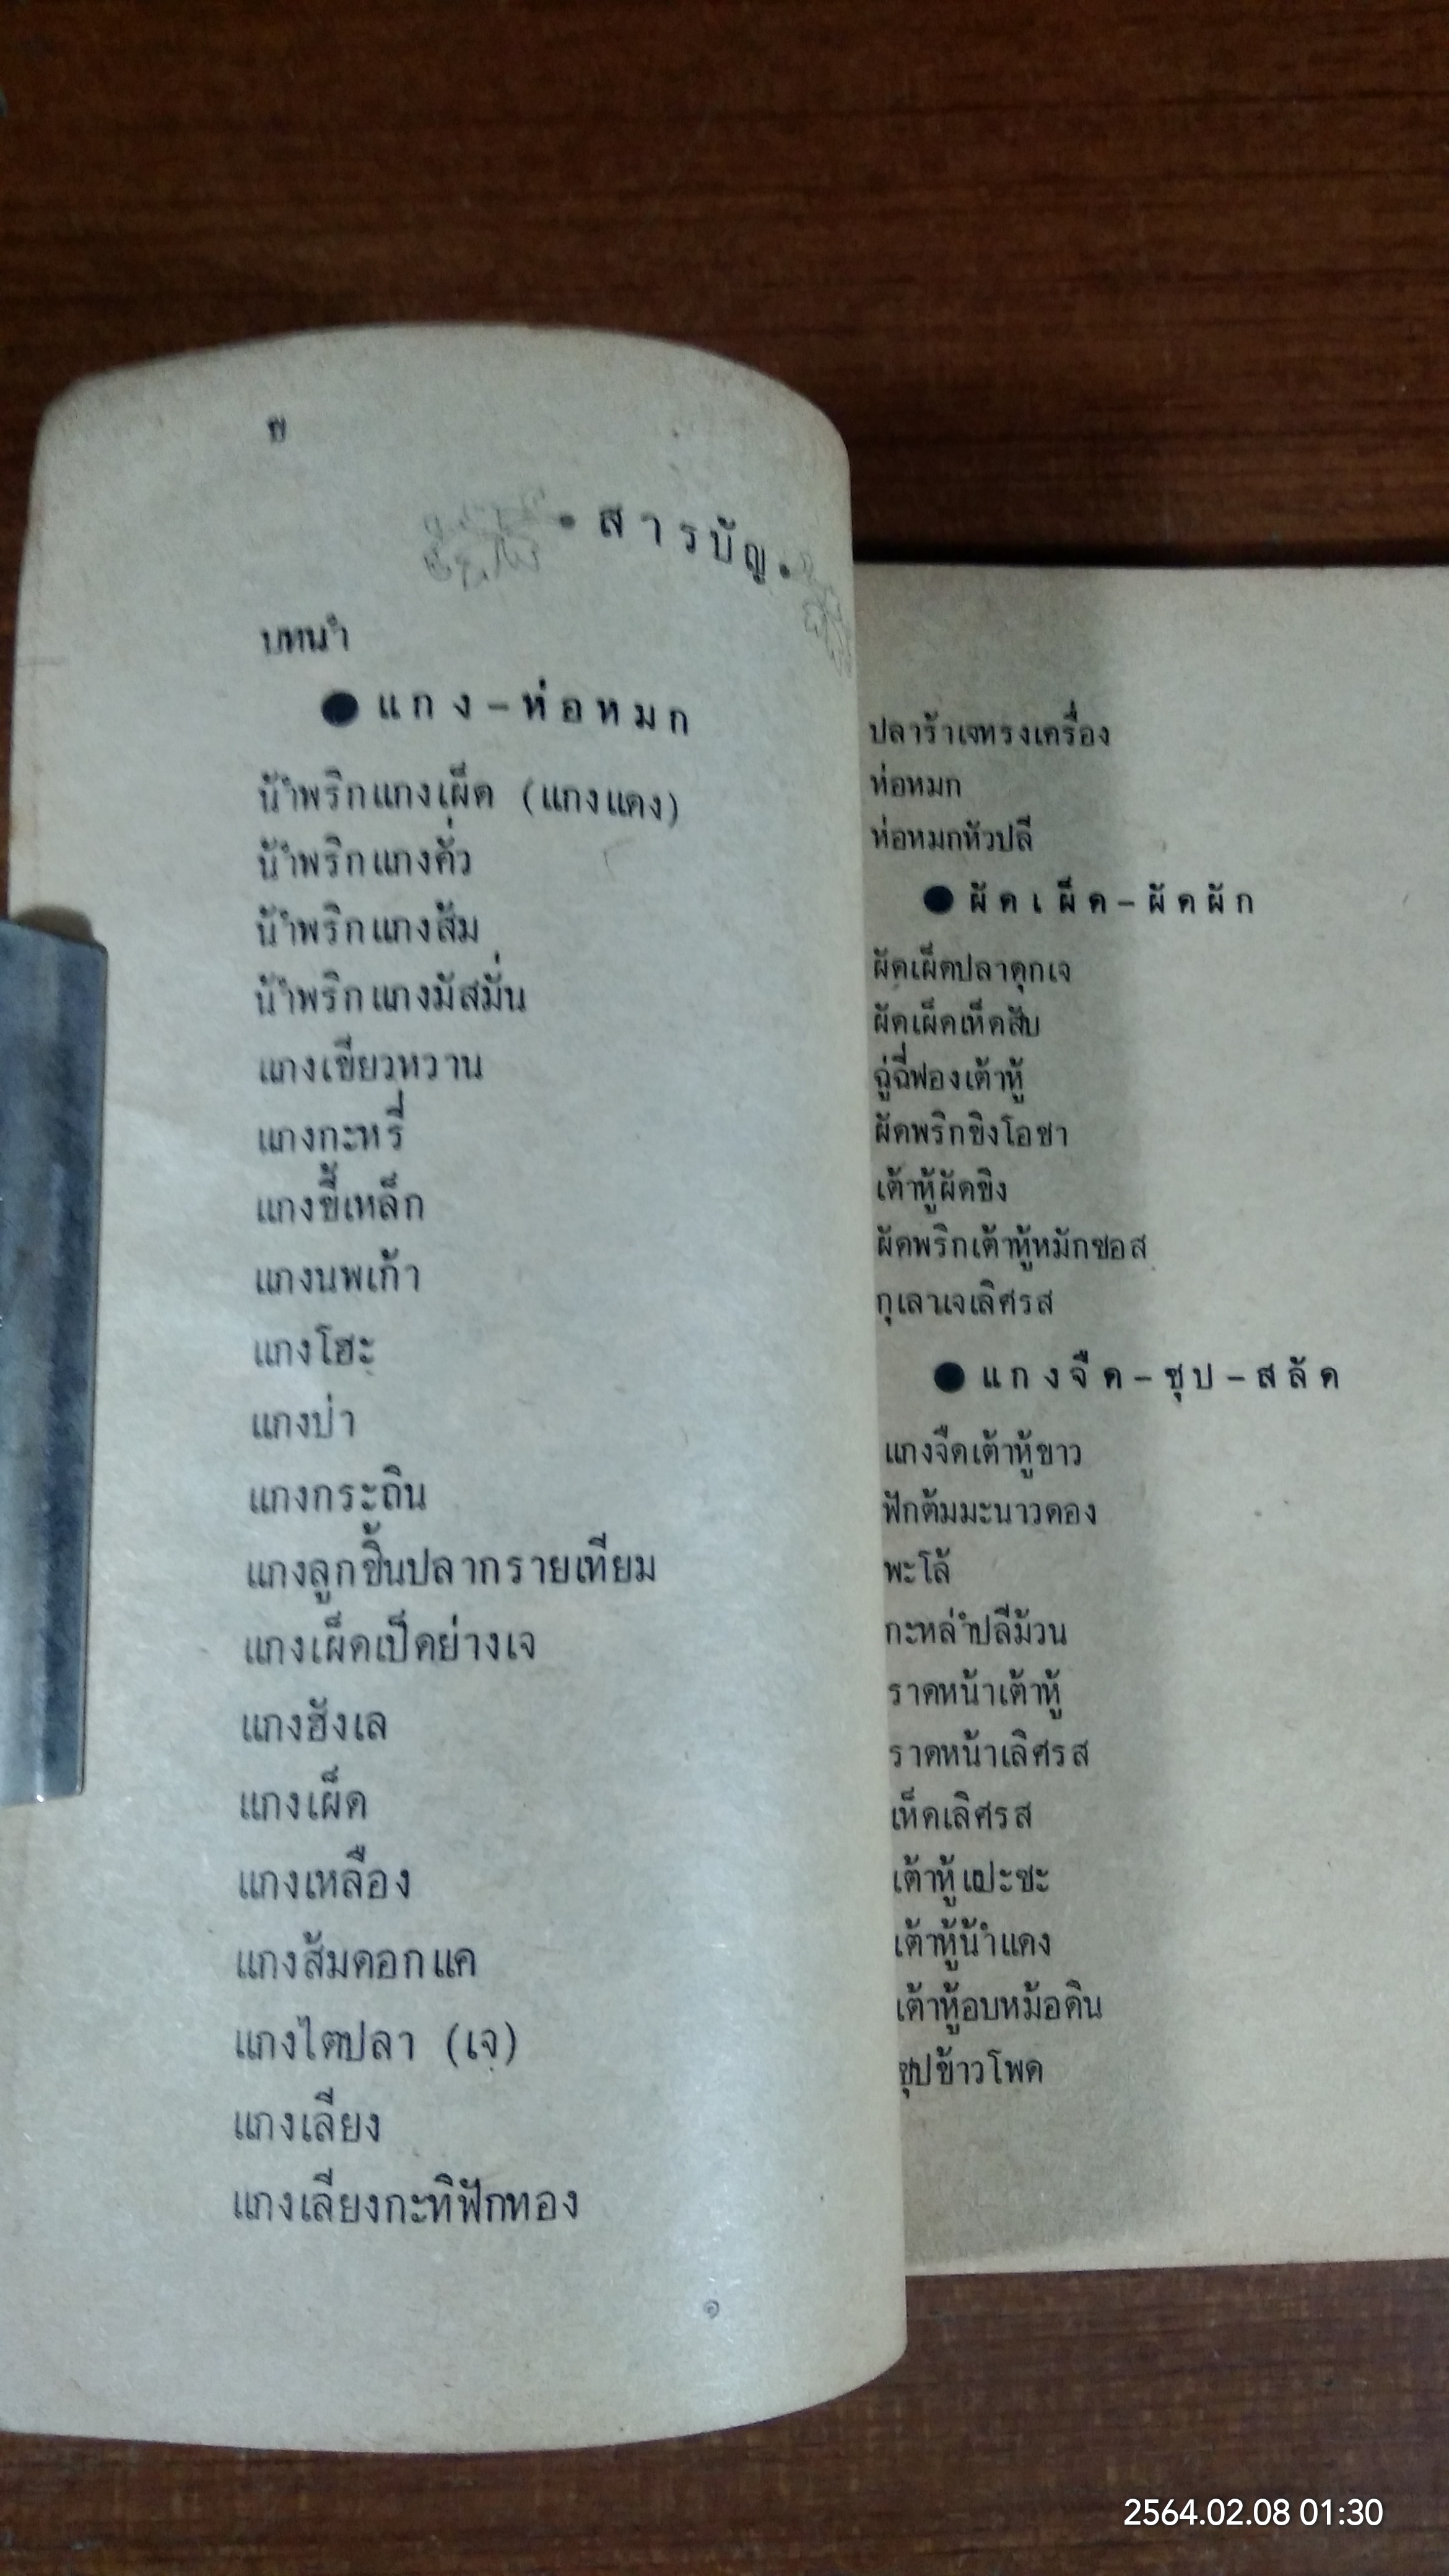 • สารบัญ •
บทนำ
● แกง-ห่อหมก
น้ำพริกแกงเผ็ด (แกงแดง)
น้ำพริกแกงคั่ว
น้ำพริกแกงส้ม
น้ำพริกแกงมัสมั่น
แกงเขียวหวาน
แกงกะหรี่
แกงขี้เหล็ก
แกงนพเก้า
แกงโฮะ
แกงป่า
แกงกระถิน
แกงลูกชิ้นปลากรายเทียม
แกงเผ็ดเป็ดย่างเจ
แกงฮังเล
แกงเผ็ด
แกงเหลือง
แกงส้มดอกแค
แกงไตปลา (เจ)
แกงเลียง
แกงเลียงกะทิฟักทอง
๑
ปลาร้าเจทรงเครื่อง
ห่อหมก
ห่อหมกหัวปลี
● ผัดเผ็ด-ผัดผัก
ผัดเผ็ดปลาดุกเจ
ผัดเผ็ดเห็ดสับ
ฉู่ฉี่ฟองเต้าหู้
ผัดพริกขิงโอชา
เต้าหู้ผัดขิง
ผัดพริกเต้าหู้หมักซอส
กุเลาเจเลิศรส
● แกงจืด-ซุป-สลัด
แกงจืดเต้าหู้ขาว
ฟักต้มมะนาวดอง
พะโล้
กะหล่ำปลีม้วน
ราดหน้าเต้าหู้
ราดหน้าเลิศรส
เห็ดเลิศรส
เต้าหู้แปะซะ
เต้าหู้น้ำแดง
เต้าหู้อบหม้อดิน
ซุปข้าวโพด
2564.02.08 01:30